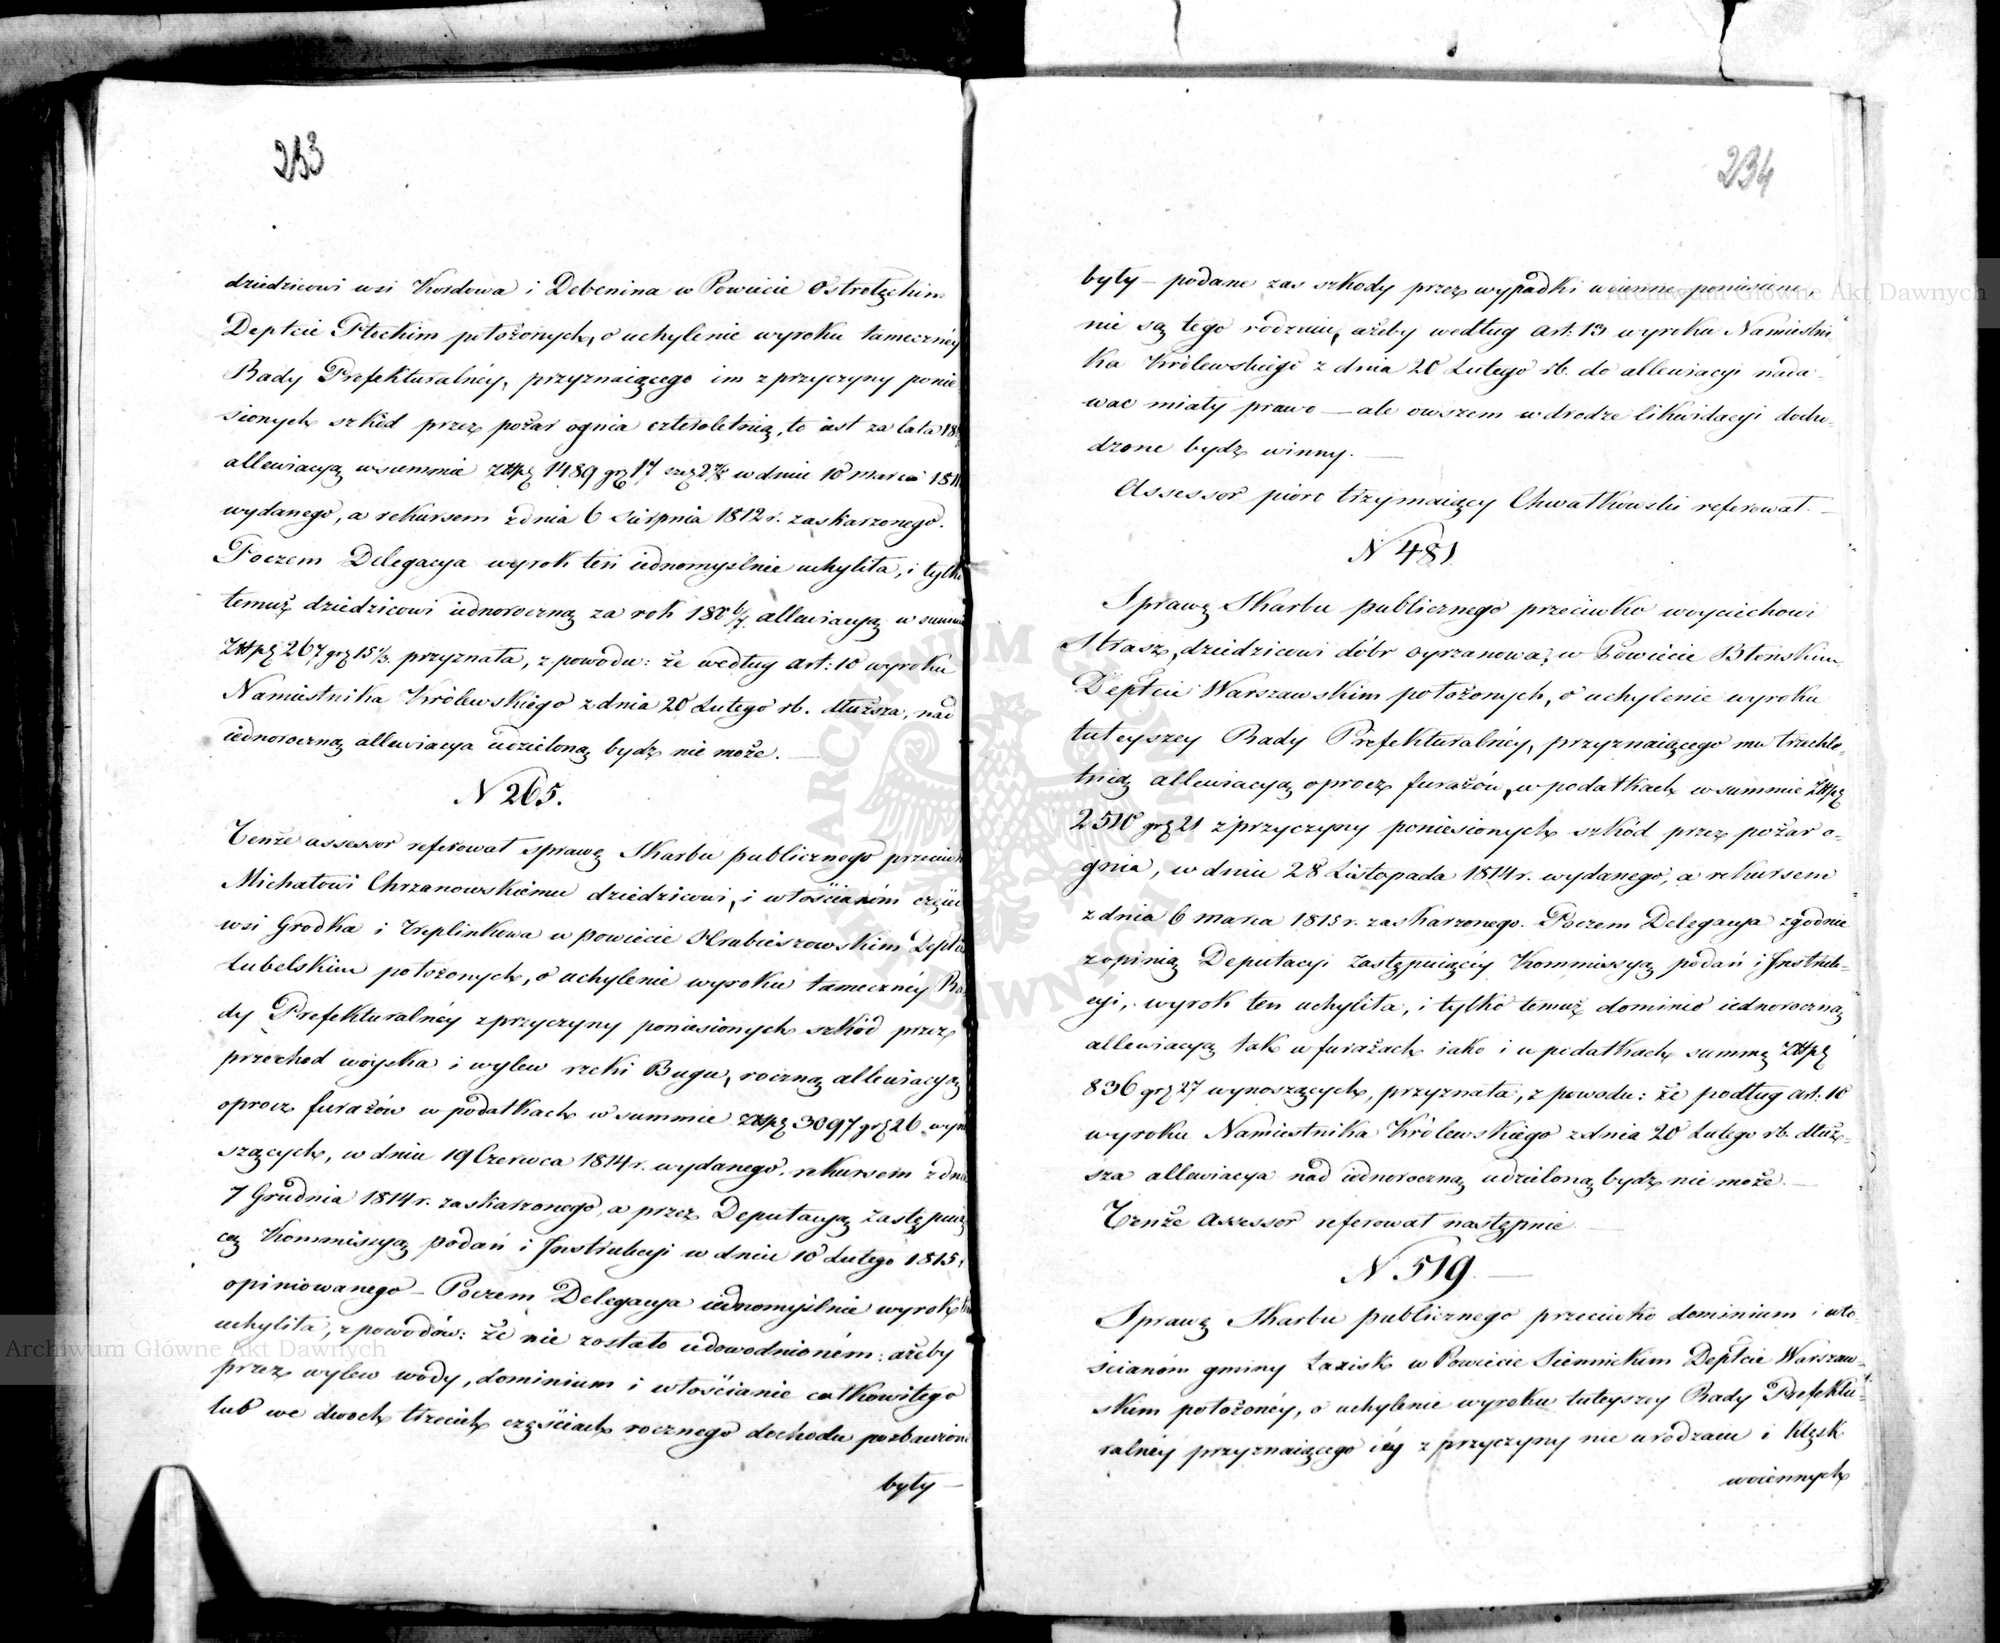 233
dziedzicowi wsi Kordowa i Debenina w Powiecie Ostrołęckim
Deptcie Płockim położonych, o uchylenie wyroku tameczney
Rady Prefekturalnéy, przyznaiącego im z przyczyny ponie
sionych szkód przez pożar ognia czteroletnią, to iest za lata
allewiacyą w summie złłpl 1489 gr 17 w dniu 10 marca
wydanego, a rekursem z dnia 6 Sierpnia 1812 r. zaskarzonego.
Poczem Delegacya wyrok ten iednomyślnie uchyliła, i tylko
temuż dziedzicowi iednoroczną za rok 180 6/7 allewiacyą w summie
złłpl 267 gr 15 1/3 przyznała, z powodu: że według art: 10 wyroku
Namiestnika Królewskiego z dnia 20 Lutego rb. dłuższa, nad
iednoroczną allewiacya udzieloną bydz nie może. —
N 265.
Tenże assessor referował sprawę Skarbu publicznego przeciwko
Michałowi Chrzanowskiemu dziedzicowi, i włościanóm części
wsi Grodka i Czeplinkowa w powiecie Hrubieszowskim Deptcie
Lubelskim położonych, o uchylenie wyroku tamecznéy Ra
dy Prefekturalnéy z przyczyny poniesionych szkód przez
przechod woyska i wylew rzeki Bugu, roczną allewiacyą
oprocz furażów w podatkach w summie złłpl 3097 gr 26 wyno
szących, w dniu 19 Czerwca 1814 r. wydanego, rekursem z dnia
7 Grudnia 1814 r. zaskarzonego, a przez Deputacyą zastępuią
cą Kommissyą podań i Instrukcyi w dniu 10 Lutego 1815
opiniowanego — Poczem Delegacya iednomyślnie wyrok ten
uchyliła, z powodów: że nie zostało udowodnioném: ażeby
przez wylew wody, dominium i włościanie całkowitego
lub we dwóch trzecich częściach rocznego dochodu pozbawione
były —
234
były — podane zas szkody przez wypadki wojenne poniesione,
nie są tego rodzaiu, ażeby według art: 13 wyroku Namiestni
ka Królewskiego z dnia 20 Lutego rb. do allewiacyi nada-
wac miały prawo — ale owszem w drodze likwidacyi docho-
dzone bydz winny. —
Assessor pioro trzymaiący Chwalkowski referował. —
N 481
Sprawę Skarbu publicznego przeciwko woyciechowi
Strasz, dziedzicowi dóbr Oyrzanowa, w Powiecie Błońskim
Deptcie Warszawskim położonych, o uchylenie wyroku
tuteyszey Rady Prefekturalnéy, przyznaiącego mu trzechle-
tnią allewiacyą oprocz furażów, w podatkach w summie złłpl
2510 gr 21 z przyczyny poniesionych szkód przez pożar o-
gnia, w dniu 28 Listopada 1814 r. wydanego, a rekursem
z dnia 6 marca 1815 r. zaskarzonego. Poczem Delegacya zgodnie
z opinią Deputacyi zastępuiącéy Kommissyą podań i Instruk-
cyi, wyrok ten uchyliła, i tylko temuż dominio iednoroczną
allewiacyą tak w furażach iako i w podatkach summę złłpl
836 gr 27 wynoszących, przyznała, z powodu: że podług art: 10
wyroku Namiestnika Królewskiego z dnia 20 Lutego rb. dłuż-
sza allewiacya nad iednoroczną udzieloną bydz nie może. —
Tenże assessor referował następnie —
N 519. —
Sprawę Skarbu publicznego przeciwko dominium i wło
ścianóm gminy Łazisk w Powiecie Siennickim Deptcie Warszaw-
skim położonéy, o uchylenie wyroku tuteyszey Rady Prefektu-
ralnéy przyznaiącego iéy z przyczyny nie urodzaiu i klęsk
woiennych
ARCHIWUM GŁÓWNE AKT DAWNYCH
Archiwum Główne Akt Dawnych
Archiwum Główne Akt Dawnych